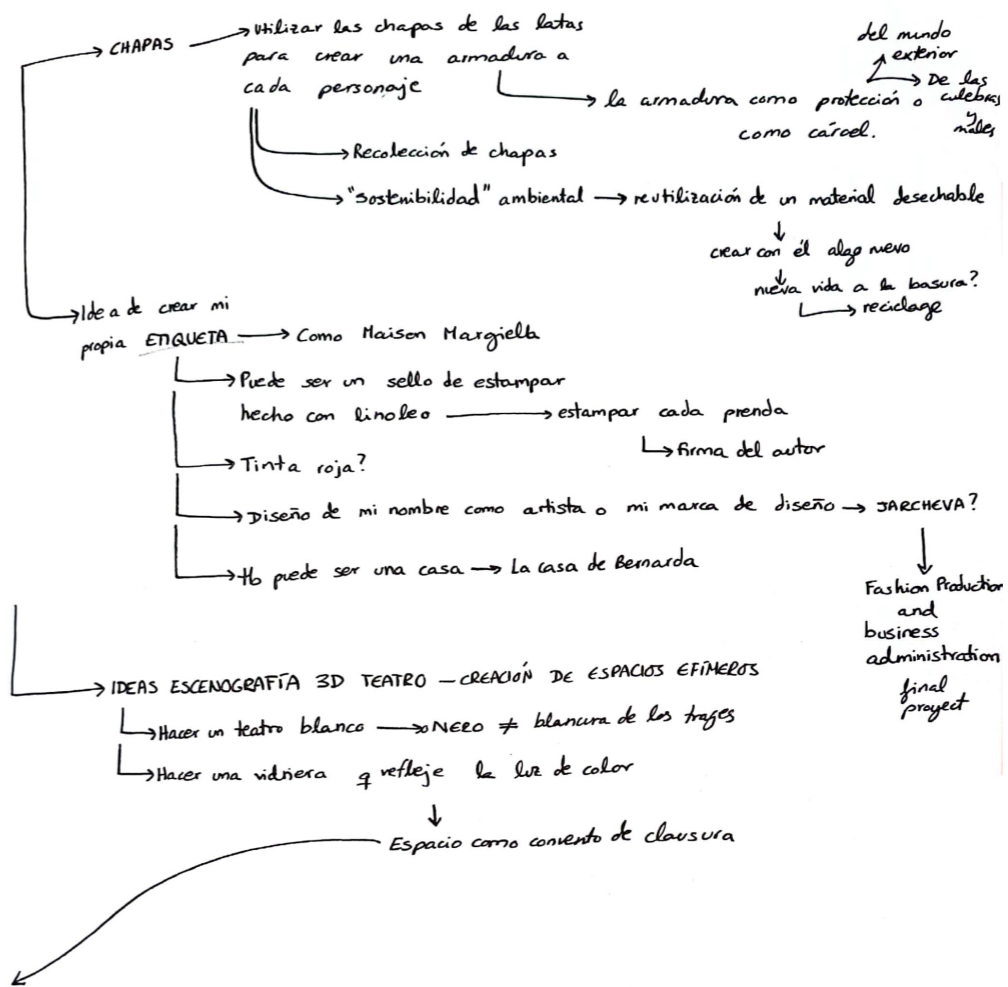 → CHAPAS → Utilizar las chapas de las latas
para crear una armadura a
cada personaje
→ la armadura como protección o
como cárcel.
del mundo
exterior
→ De las
culebras
y
males
→ Recolección de chapas
→ "Sostenibilidad" ambiental → reutilización de un material desechable
↓
crear con él algo nuevo
↓
nueva vida a la basura?
→ reciclage
→ Idea de crear mi
propia ETIQUETA → Como Maison Margiella
→ Puede ser un sello de estampar
hecho con linoleo → estampar cada prenda
→ firma del autor
→ Tinta roja?
→ Diseño de mi nombre como artista o mi marca de diseño → JARCHEVA?
↓
Fashion Production
and
business
administration
final
proyect
→ puede ser una casa → La casa de Bernarda
→ IDEAS ESCENOGRAFÍA 3D TEATRO – CREACIÓN DE ESPACIOS EFÍMEROS
→ Hacer un teatro blanco → NERO ≠ blancura de los trajes
→ Hacer una vidriera q refleje la luz de color
↓
Espacio como convento de clausura